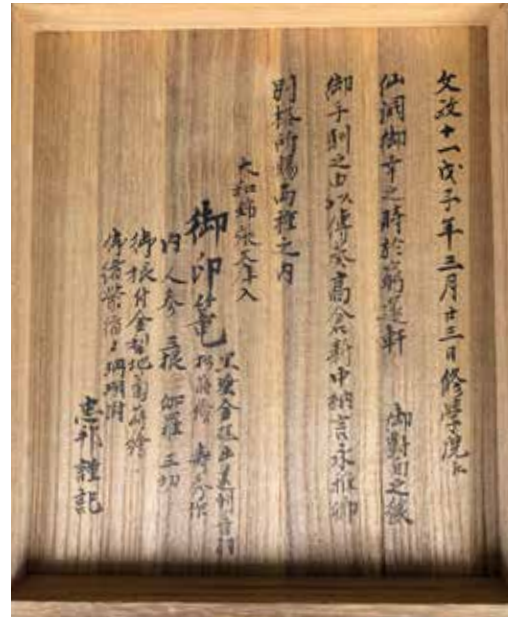 文政十一戊子年三月廿三日修學院江
仙洞御幸之時於窮邃軒 御對面之後
御手自之由以傳奏高倉新中納言永雅卿
別格所賜両種之内
大和錦張文庫入
御印篭 黒塗金
松蒔繪
内人参 三根 伽羅 三切
御根付金梨地菊蒔繪
御緒 珊瑚
忠邦謹記